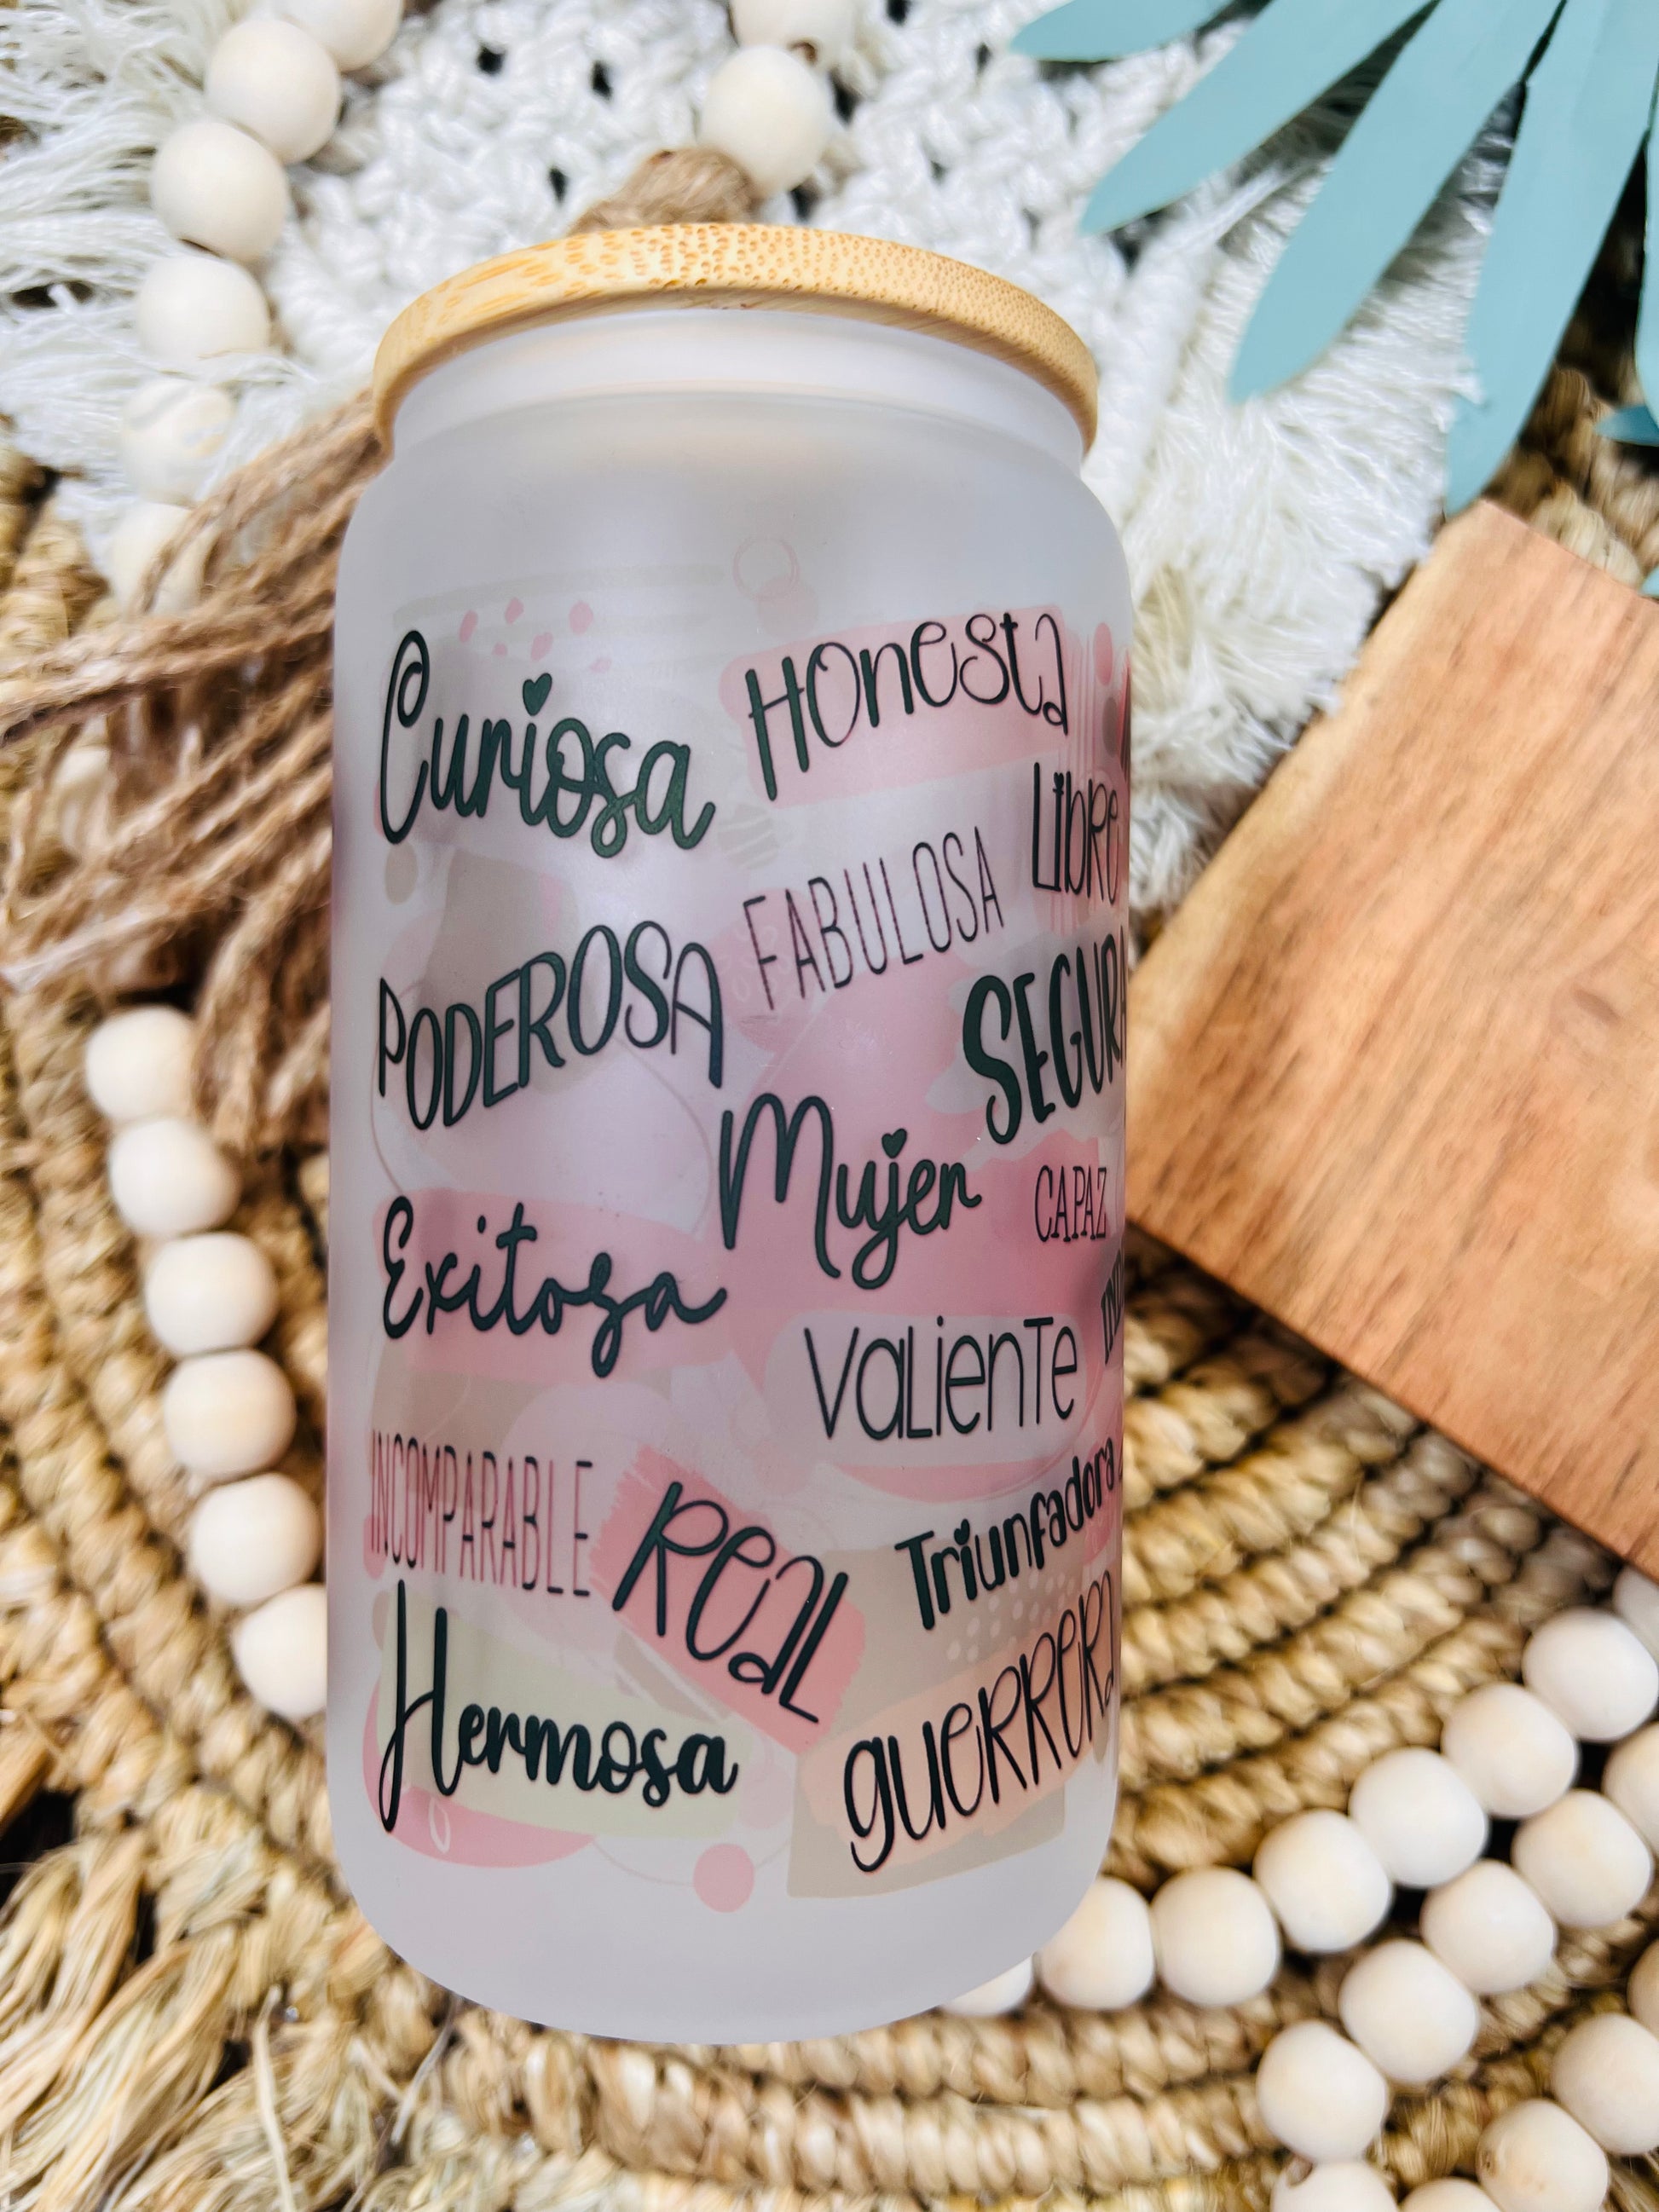 Curiosa
Honesta
Libre
FABULOSA
PODEROSA
SEGURA
Mujer
CAPAZ
Exitosa
Valiente
INCOMPARABLE
Real
Triunfadora
Hermosa
guerrera